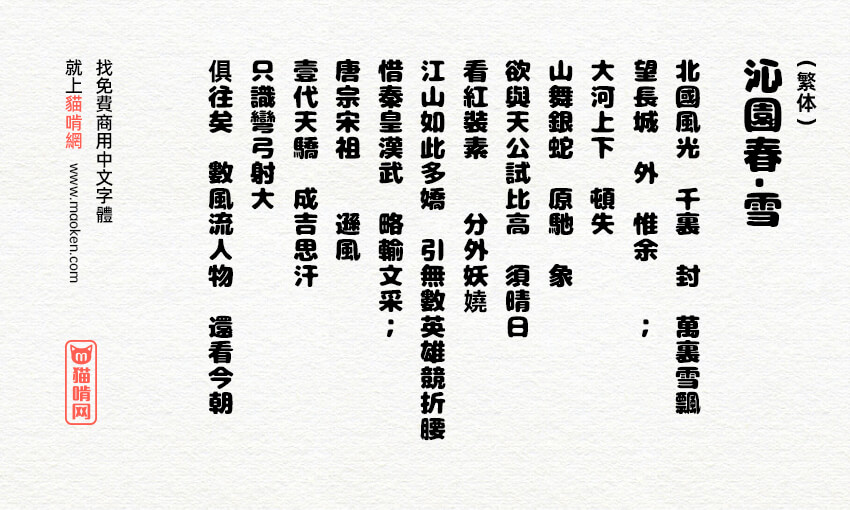 (繁体)
沁園春·雪
北國風光 千裏 封 萬裏雪飄
望長城 外 惟余 ;
大河上下 頓失
山舞銀蛇 原馳 象
欲與天公試比高 須晴日
看紅裝素 分外妖嬈
江山如此多嬌 引無數英雄競折腰
惜秦皇漢武 略輸文采;
唐宗宋祖 遜風
壹代天驕 成吉思汗
只識彎弓射大
俱往矣 數風流人物 還看今朝
找免費商用中文字體
就上貓啃網 www.maoken.com
猫啃网